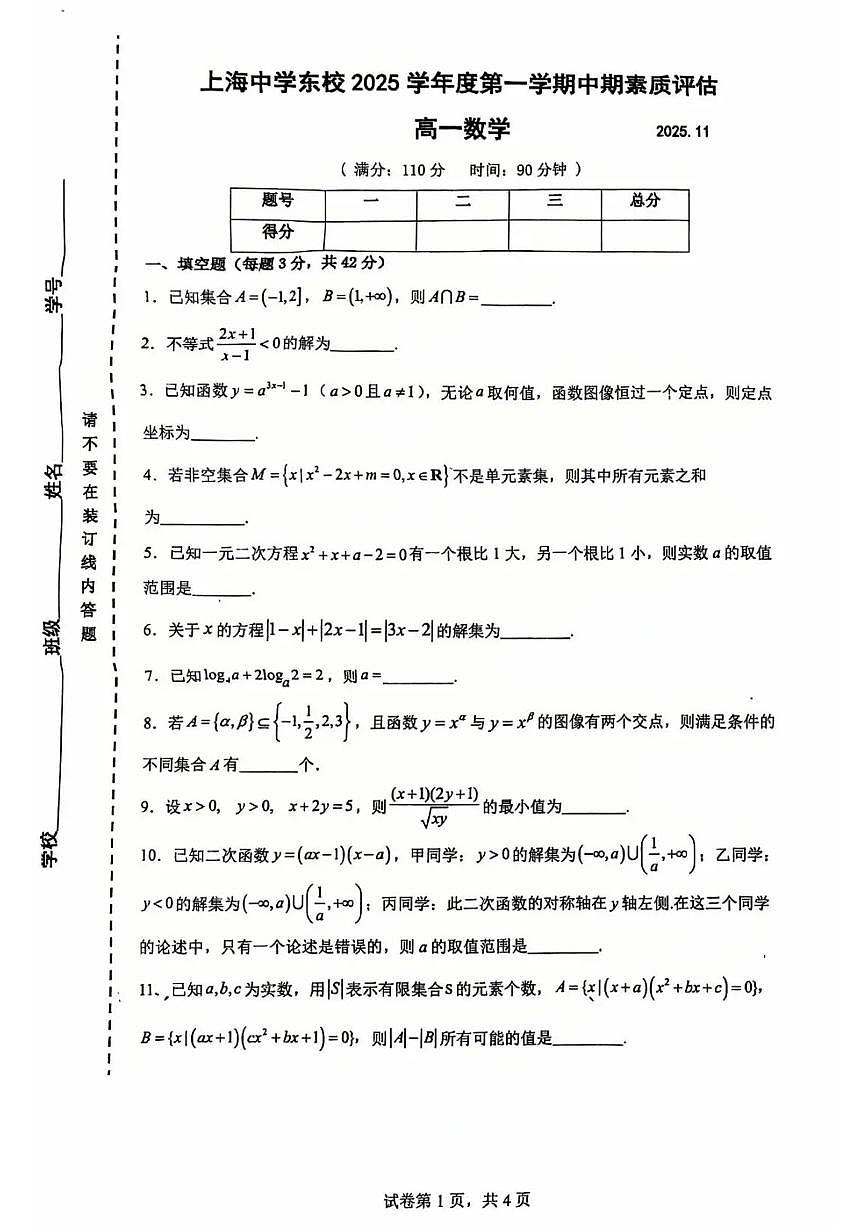 上海中学东校 2025 学年度第一学期中期素质评估
高一数学 2025.11
( 满分: 110 分 时间: 90 分钟 )
题号 一 二 三 总分
得分
一、填空题（每题 3 分，共 42 分）
1. 已知集合 A=(-1,2], B=(1,+∞), 则 A∩B=________.
2. 不等式 (2x+1)/(x-1) <0 的解为________.
3. 已知函数 y=a^{3x-1}-1（a>0 且 a≠1），无论 a 取何值，函数图像恒过一个定点，则定点
坐标为________.
4. 若非空集合 M={x|x²-2x+m=0,x∈R} 不是单元素集，则其中所有元素之和
为________.
5. 已知一元二次方程 x²+x+a-2=0 有一个根比 1 大，另一个根比 1 小，则实数 a 的取值
范围是________.
6. 关于 x 的方程 |1-x|+|2x-1|=|3x-2| 的解集为________.
7. 已知 log₄a+2logₐ2=2，则 a=________.
8. 若 A={α,β}⊆{-1,1/2,2,3}，且函数 y=x^α 与 y=x^β 的图像有两个交点，则满足条件的
不同集合 A 有________个.
9. 设 x>0, y>0, x+2y=5，则 (x+1)(2y+1)/√xy 的最小值为________.
10. 已知二次函数 y=(ax-1)(x-a)，甲同学：y>0 的解集为 (-∞,a)∪(1/a,+∞)；乙同学：
y<0 的解集为 (-∞,a)∪(1/a,+∞)；丙同学：此二次函数的对称轴在 y 轴左侧.在这三个同学
的论述中，只有一个论述是错误的，则 a 的取值范围是________.
11、已知 a,b,c 为实数，用 |S| 表示有限集合 S 的元素个数，A={x|(x+a)(x²+bx+c)=0},
B={x|(ax+1)(cx²+bx+1)=0}，则 |A|-|B| 所有可能的值是________.
试卷第 1 页，共 4 页
学校________班级________姓名________学号________
请不要在装订线内答题